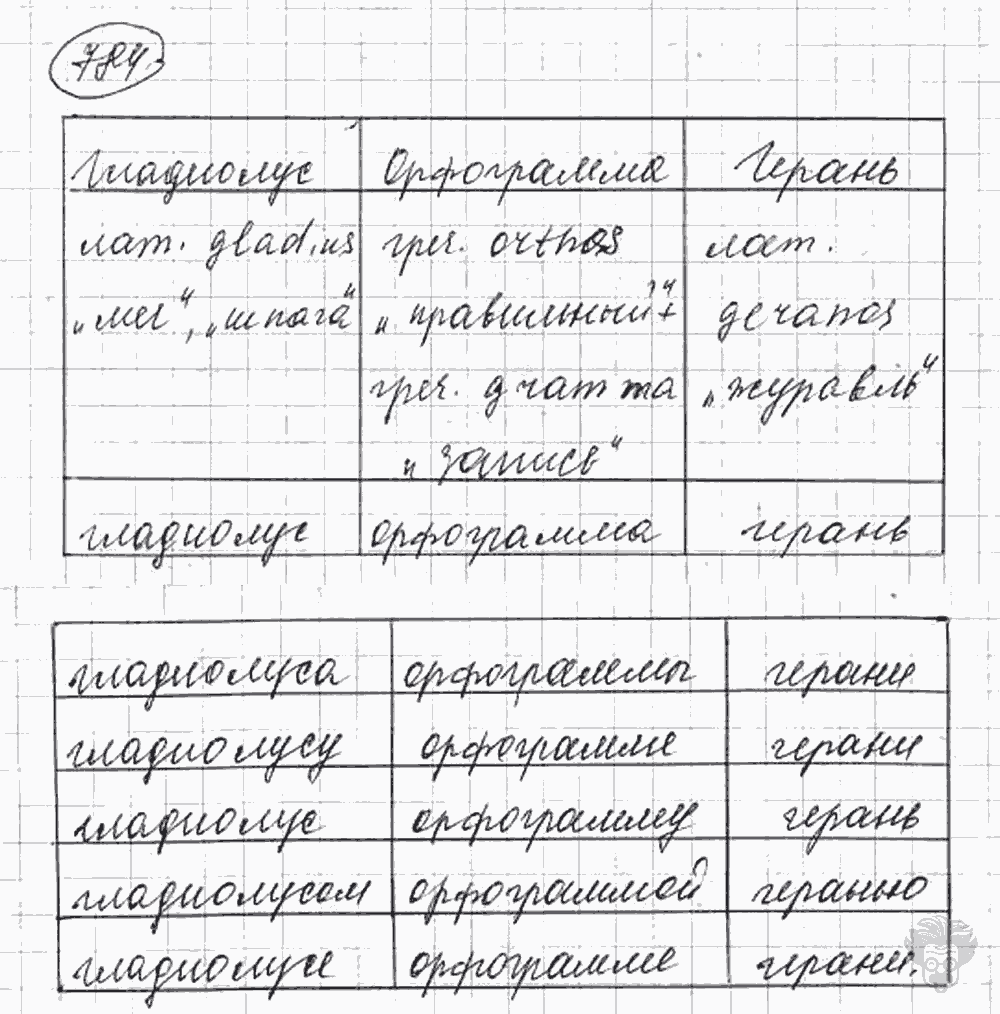 784.
Гладиолус Орфограмма Герань
лат. gladius греч. orthos лат.
„меч“, „шпага“ „правильный“+ geranos
греч. gramma „журавль“
„запись“
гладиолус орфограмма герань
гладиолуса орфограммы герани
гладиолусу орфограмме герани
гладиолус орфограмму герань
гладиолусом орфограммой геранью
гладиолусе орфограмме герани.